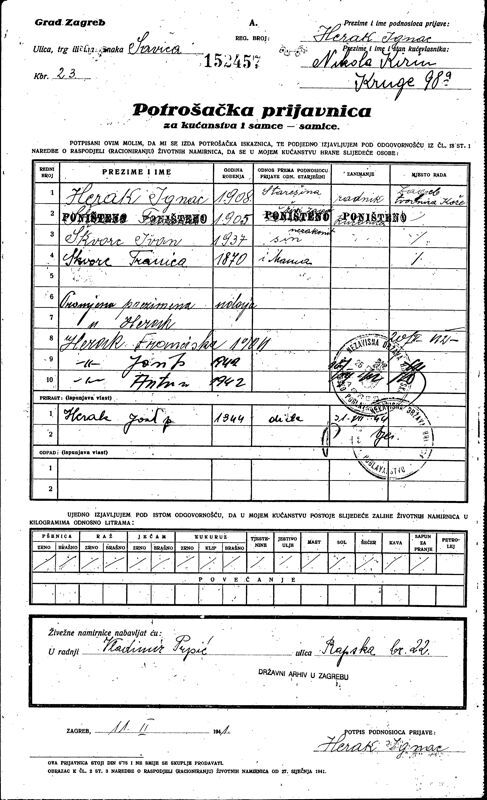 Grad Zagreb
A.
REG. BROJ:
152457
Prezime i ime podnosioca prijave:
Herak Ignac
Ulica, trg Savica
Kbr. 23
Prezime i ime i stan kućevlasnika:
Nikola Kirin
Kruge 98a
Potrošačka prijavnica
za kućanstva i samce — samice.
POTPISANI OVIM MOLIM, DA MI SE IZDA POTROŠAČKA ISKAZNICA, TE PODJEDNO IZJAVLJUJEM POD ODGOVORNOŠĆU IZ ČL. 15 ST. 1
NAREDBE O RASPODJELI (RACIONIRANJU) ŽIVOTNIH NAMIRNICA, DA SE U MOJEM KUĆANSTVU HRANE SLIJEDEĆE OSOBE:
REDNI BROJ PREZIME I IME GODINA ROĐENJA ODNOS PREMA PODNOSIOCU PRIJAVE ODN. STARJEŠINI ZANIMANJE MJESTO RADA
1 Herak Ignac 1908 Starešina radnik Zagreb
2 PONIŠTENO PONIŠTENO 1905 PONIŠTENO PONIŠTENO
3 Skvorc Ivan 1937 sin
4 Skvorc Franica 1870
5
6 prezimena
7 u Herak
8 Herak Franciska
9 -"- Josip
10 -"- Antun 1942
PRIRAST: (ispunjava vlast)
1 Herak Josip 1944
2
OTPAD: (ispunjava vlast)
1
2
UJEDNO IZJAVLJUJEM POD ISTOM ODGOVORNOŠĆU, DA U MOJEM KUĆANSTVU POSTOJE SLIJEDEĆE ZALIHE ŽIVOTNIH NAMIRNICA U
KILOGRAMIMA ODNOSNO LITRAMA:
PŠENICA RAŽ JEČAM KUKURUZ TJESTENINE JESTIVO ULJE MAST SOL ŠEĆER KAVA SAPUN ZA PRANJE PETROLEJ
ZRNO BRAŠNO ZRNO BRAŠNO ZRNO BRAŠNO ZRNO KLIP BRAŠNO
POVEĆANJE
Živežne namirnice nabavljat ću:
U radnji Vladimir Prpić ulica Rapska br. 22.
DRŽAVNI ARHIV U ZAGREBU
ZAGREB, 11 II 1941.
POTPIS PODNOSIOCA PRIJAVE:
Herak Ignac
OVA PRIJAVNICA STOJI DIN 0'75 I NE SMIJE SE SKUPLJE PRODAVATI.
OBRAZAC K ČL. 2 ST. 3 NAREDBE O RASPODJELI (RACIONIRANJU) ŽIVOTNIH NAMIRNICA OD 27. SIJEČNJA 1941.